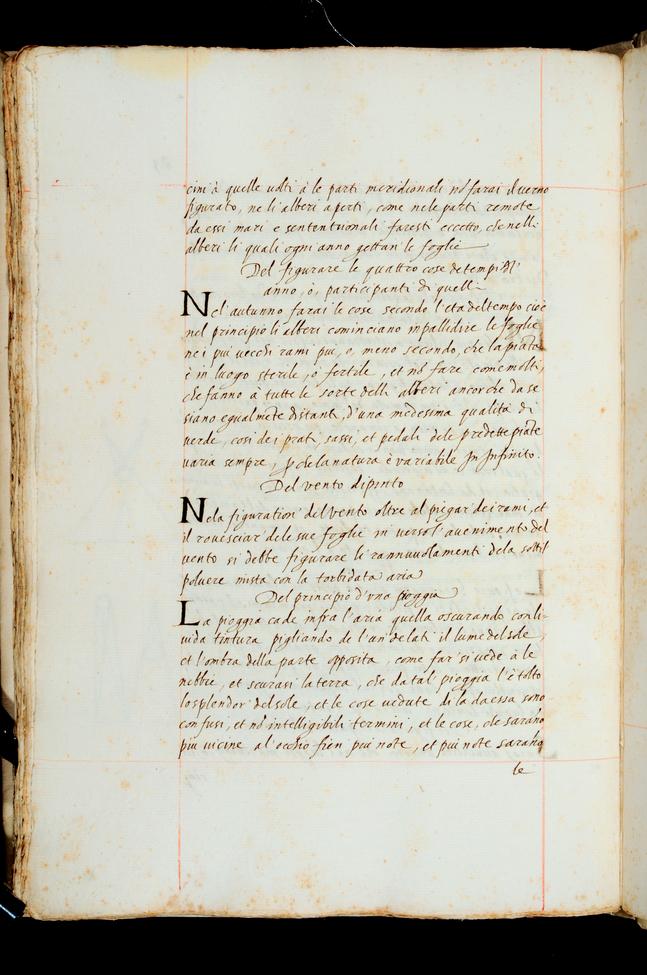 cini à quelle uolti à le parti meridionali nõ farai il uerno
figurato, ne li alberi aperti, come nele parti remote
da essi mari e sententrionali faresti eccetto, che nelli
alberi li quali ogni anno gettan le foglie
Del figurare le quattro cose de tempi dl'
anno, ò, participanti di quelli
Nel autunno farai le cose secondo l'eta del tempo cioè
nel principio li alberi cominciano inpallidire le foglie
ne i piu uecchi rami piu, o, meno secondo, che la piãta
è in luogo sterile, ò fertile, et nõ fare come molti,
che fanno à tutte le sorte delli alberi ancor che da se
siano egualmẽte distanti, d'una medesima qualità di
uerde, cosi de i prati, sassi, et pedali dele predette piãte
uaria sempre, p che la natura è variabile in infinito.
Del vento dipinto
Nela figuration del vento oltre al piegar de i rami, et
il rouesciar dele sue foglie in uerso l'auenimento del
vento si debbe figurare li rannuuolamenti dela sottil
poluere mista con la torbidata aria
Del principiò d'vna pioggia
La pioggia cade infra l'aria quella oscurando con li-
uida tintura pigliando de l'un de lati il lume del sole,
et l'ombra della parte opposita, come far si uede à le
nebbie, et scurasi la terra, che da tal pioggia l'è tolto
lo splendor del sole, et le cose uedute di la da essa sono
confusi, et nõ intelligibili termini, et le cose, che sarãno
piu uicine al'occhio fien piu note, et piu note sarãno
le